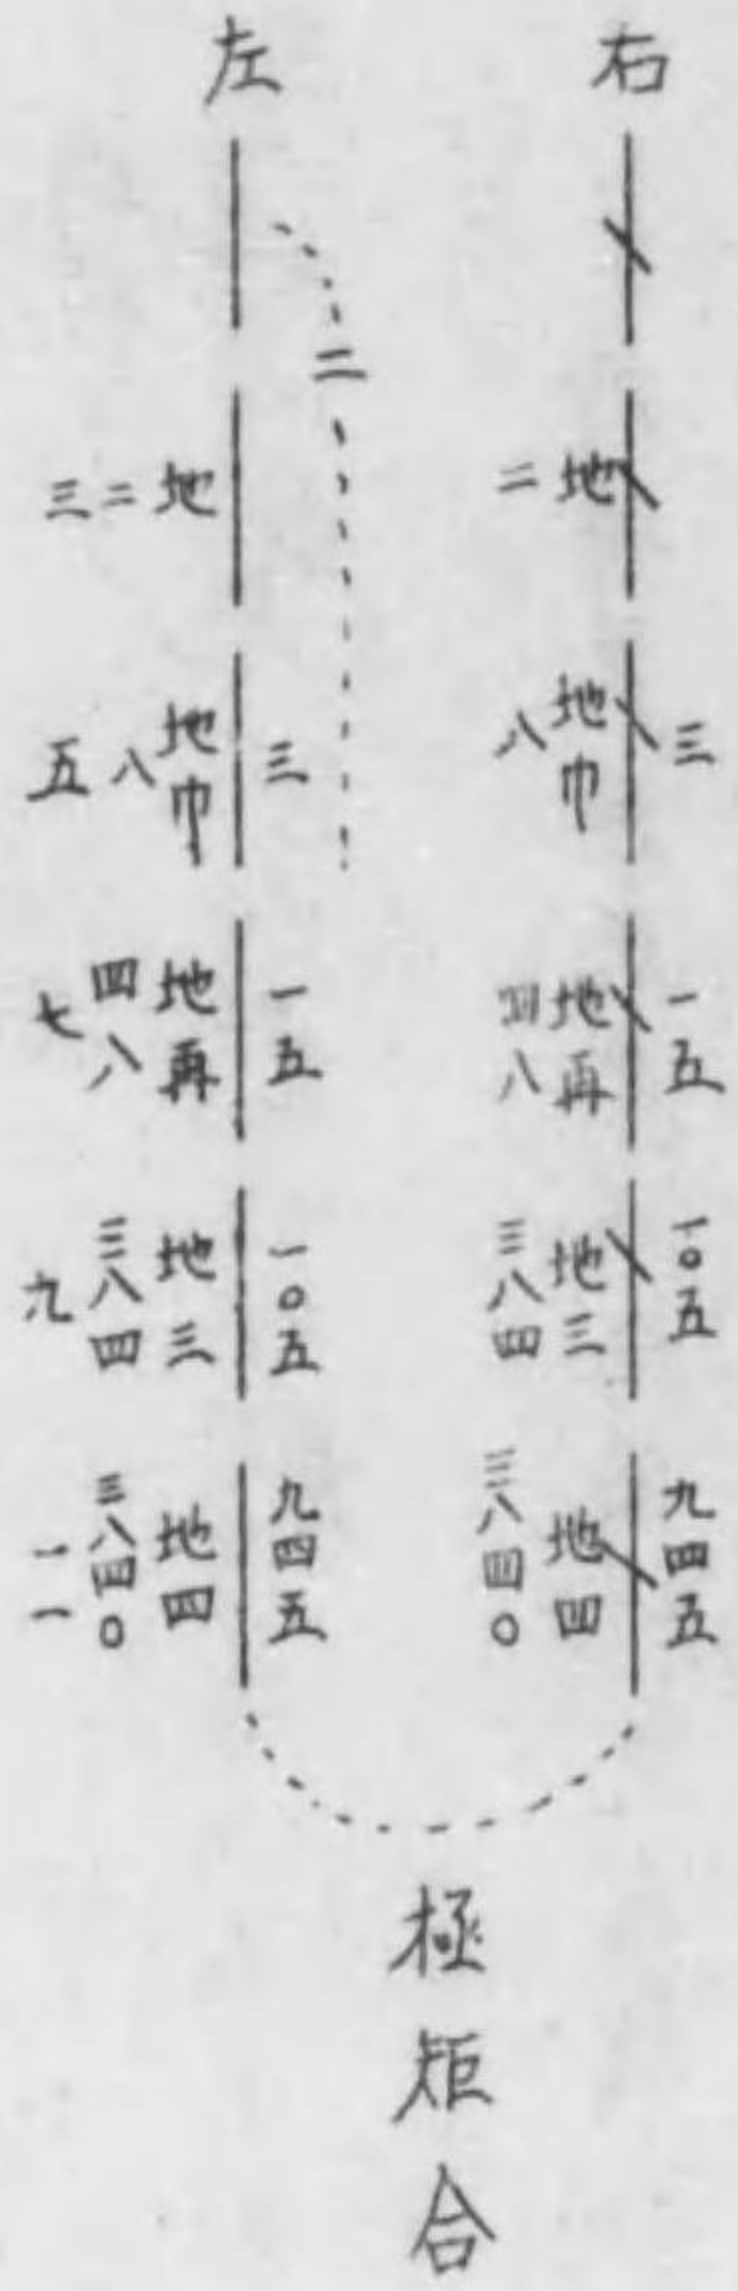 右
地
二
三
地巾
八
一五
地再
四八
一〇五
地三
三八四
九四五
地四
三八四〇
左
二
地
二
三
三
地巾
八
五
一五
地再
四八
七
一〇五
地三
三八四
九
九四五
地四
三八四〇
一一
極矩合